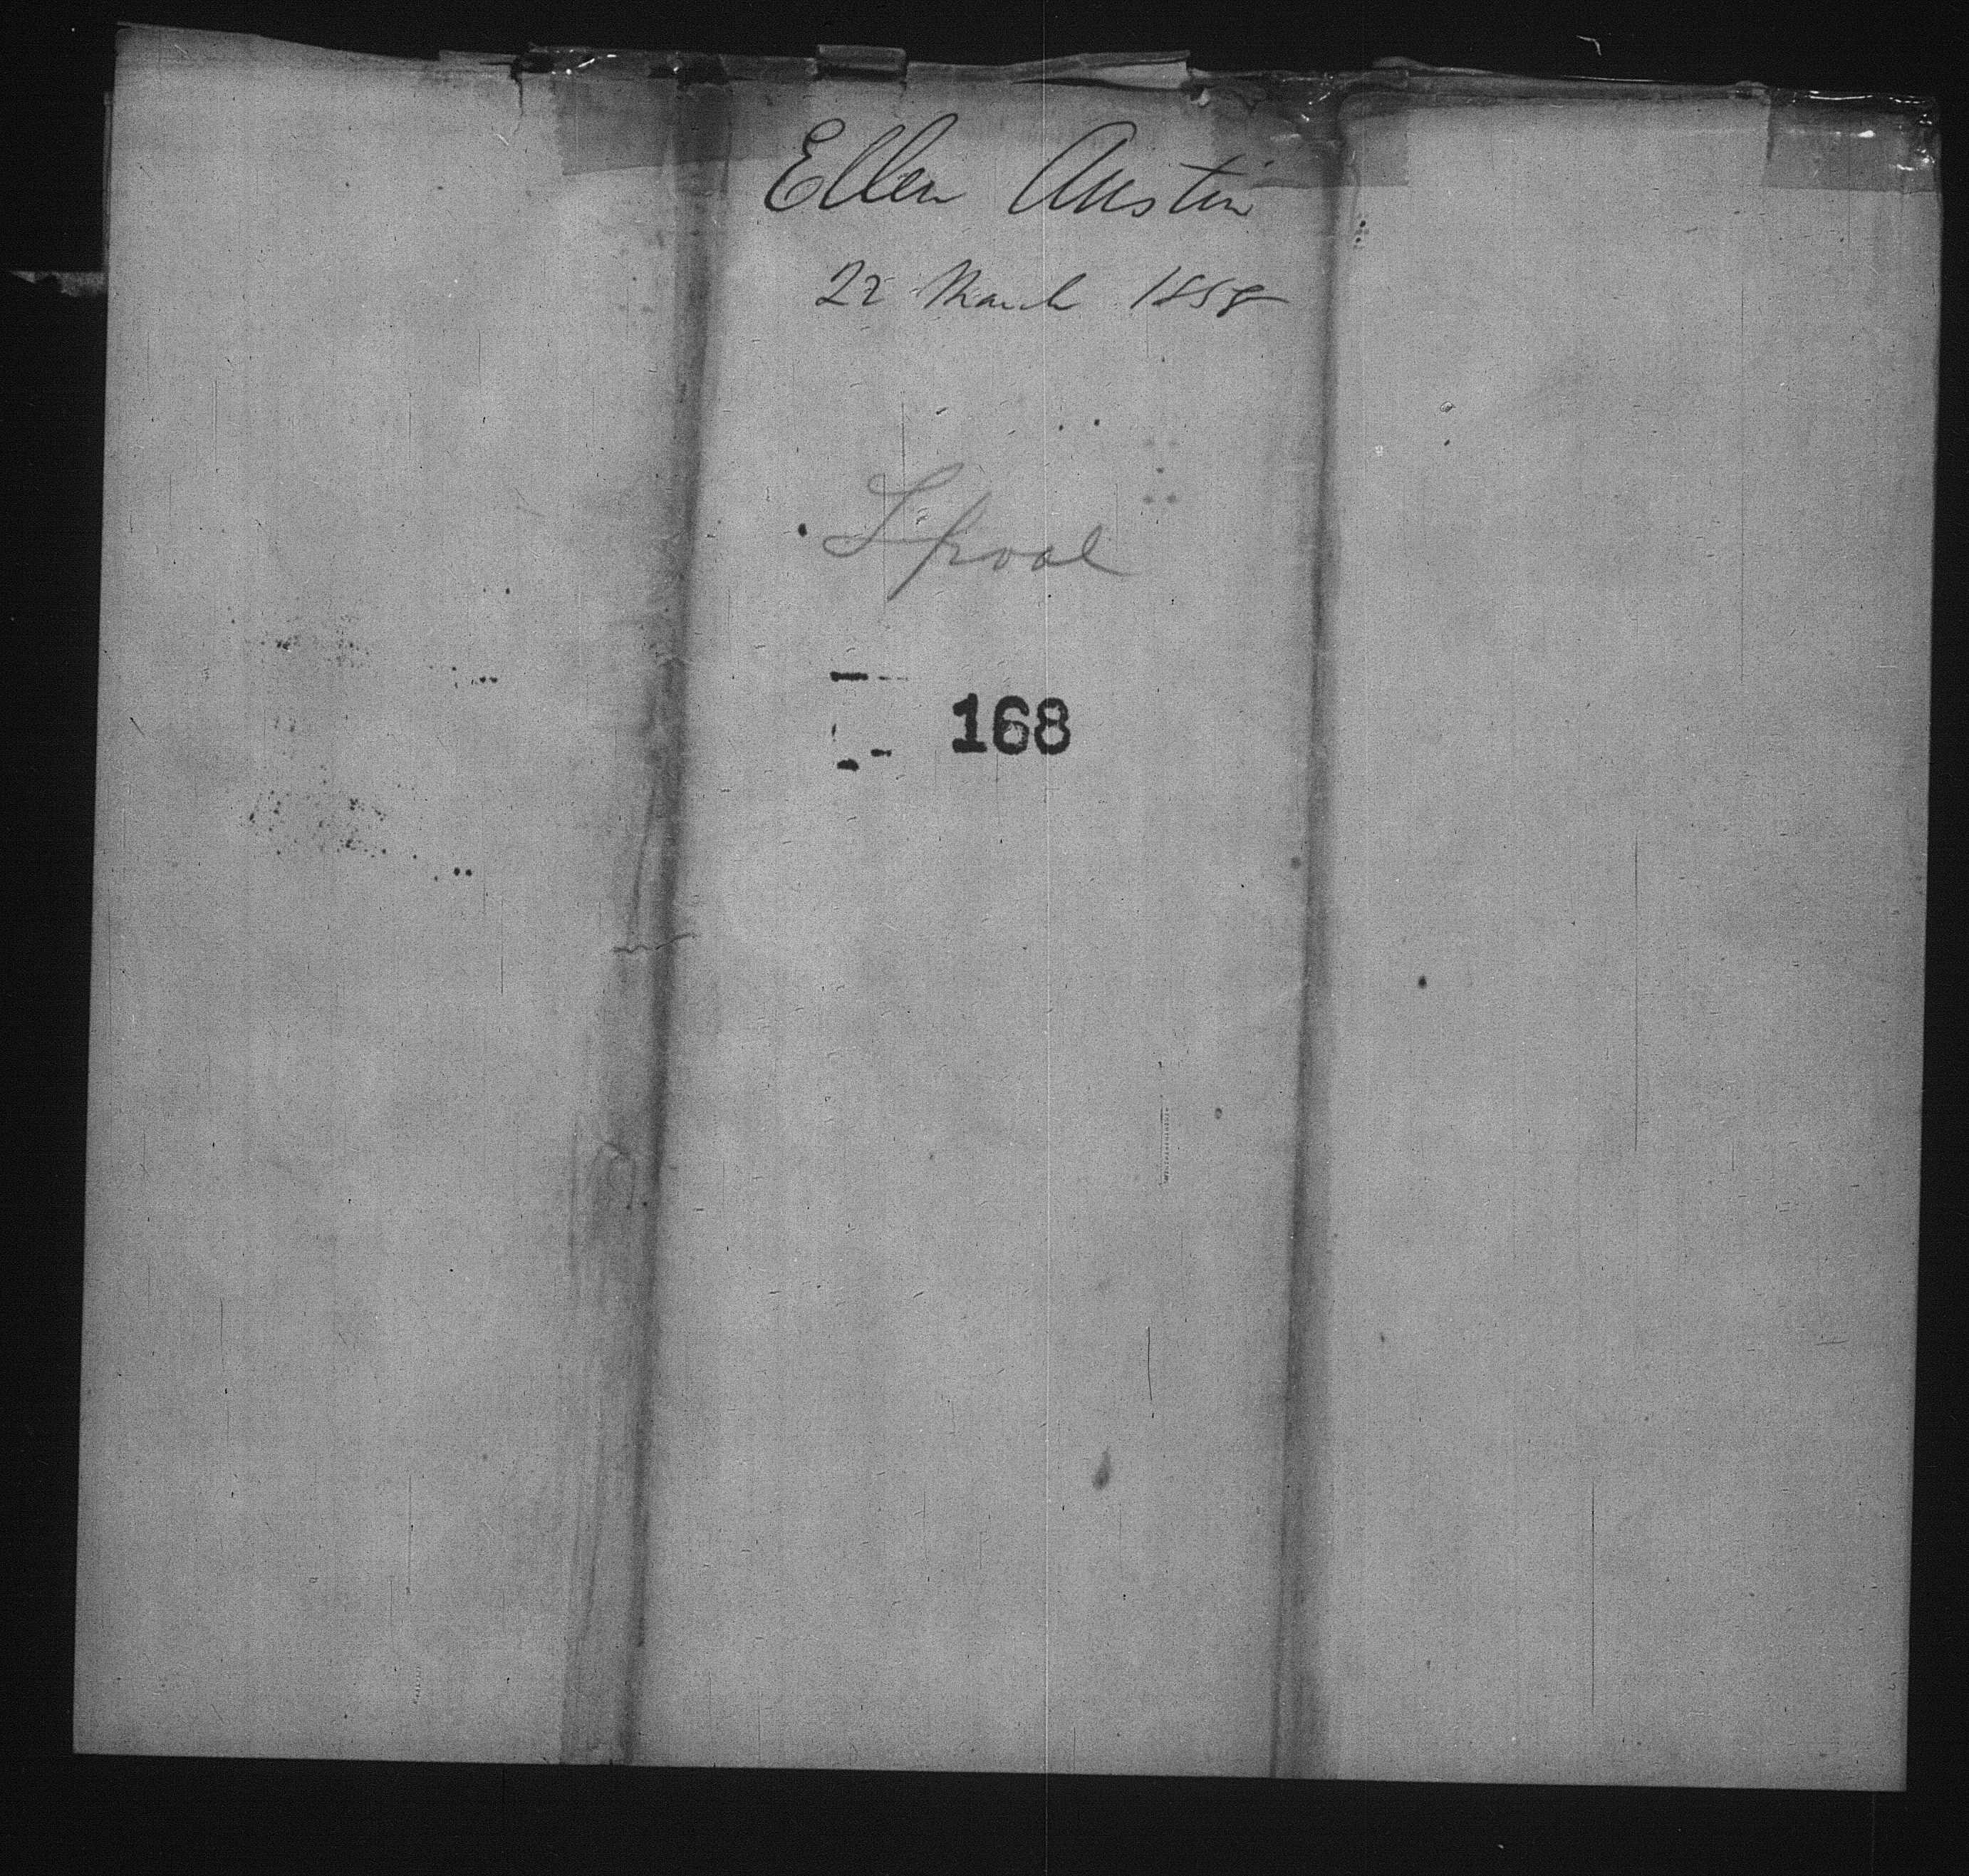 Ellen Austin
22 March 1858
L'pool
168